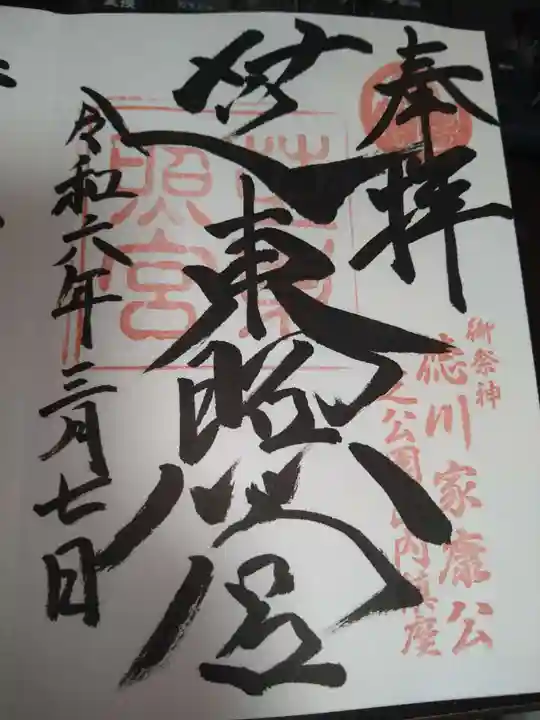 奉拝
御祭神
徳川家康公
芝公園内鎮座
芝東照宮
令和六年三月七日